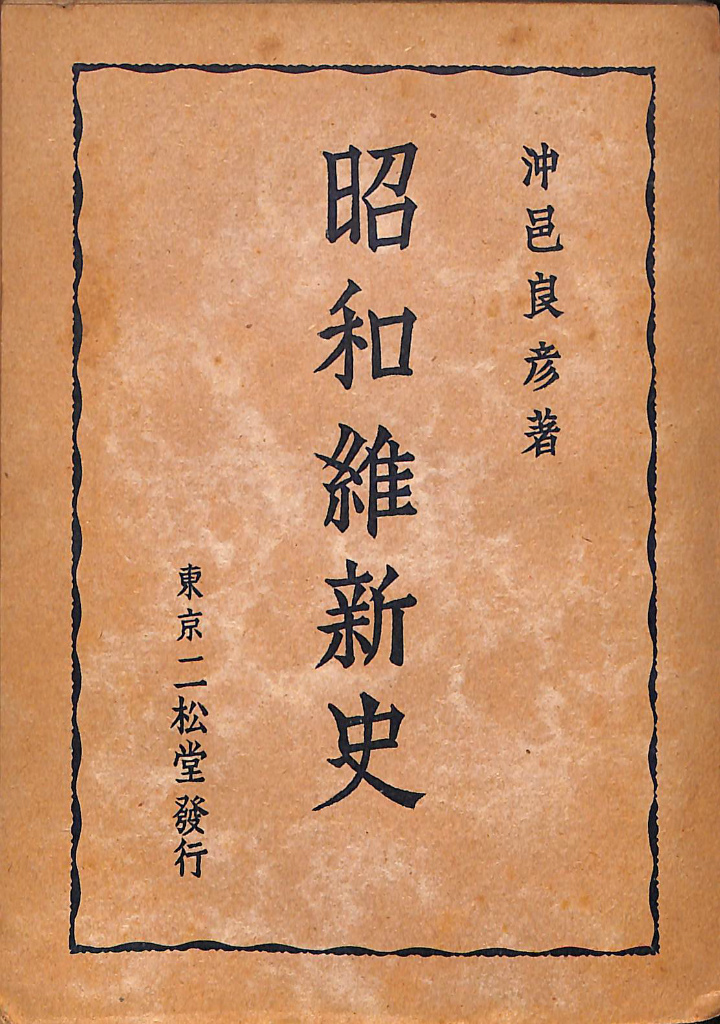 沖邑良彦著
昭和維新史
東京二松堂發行